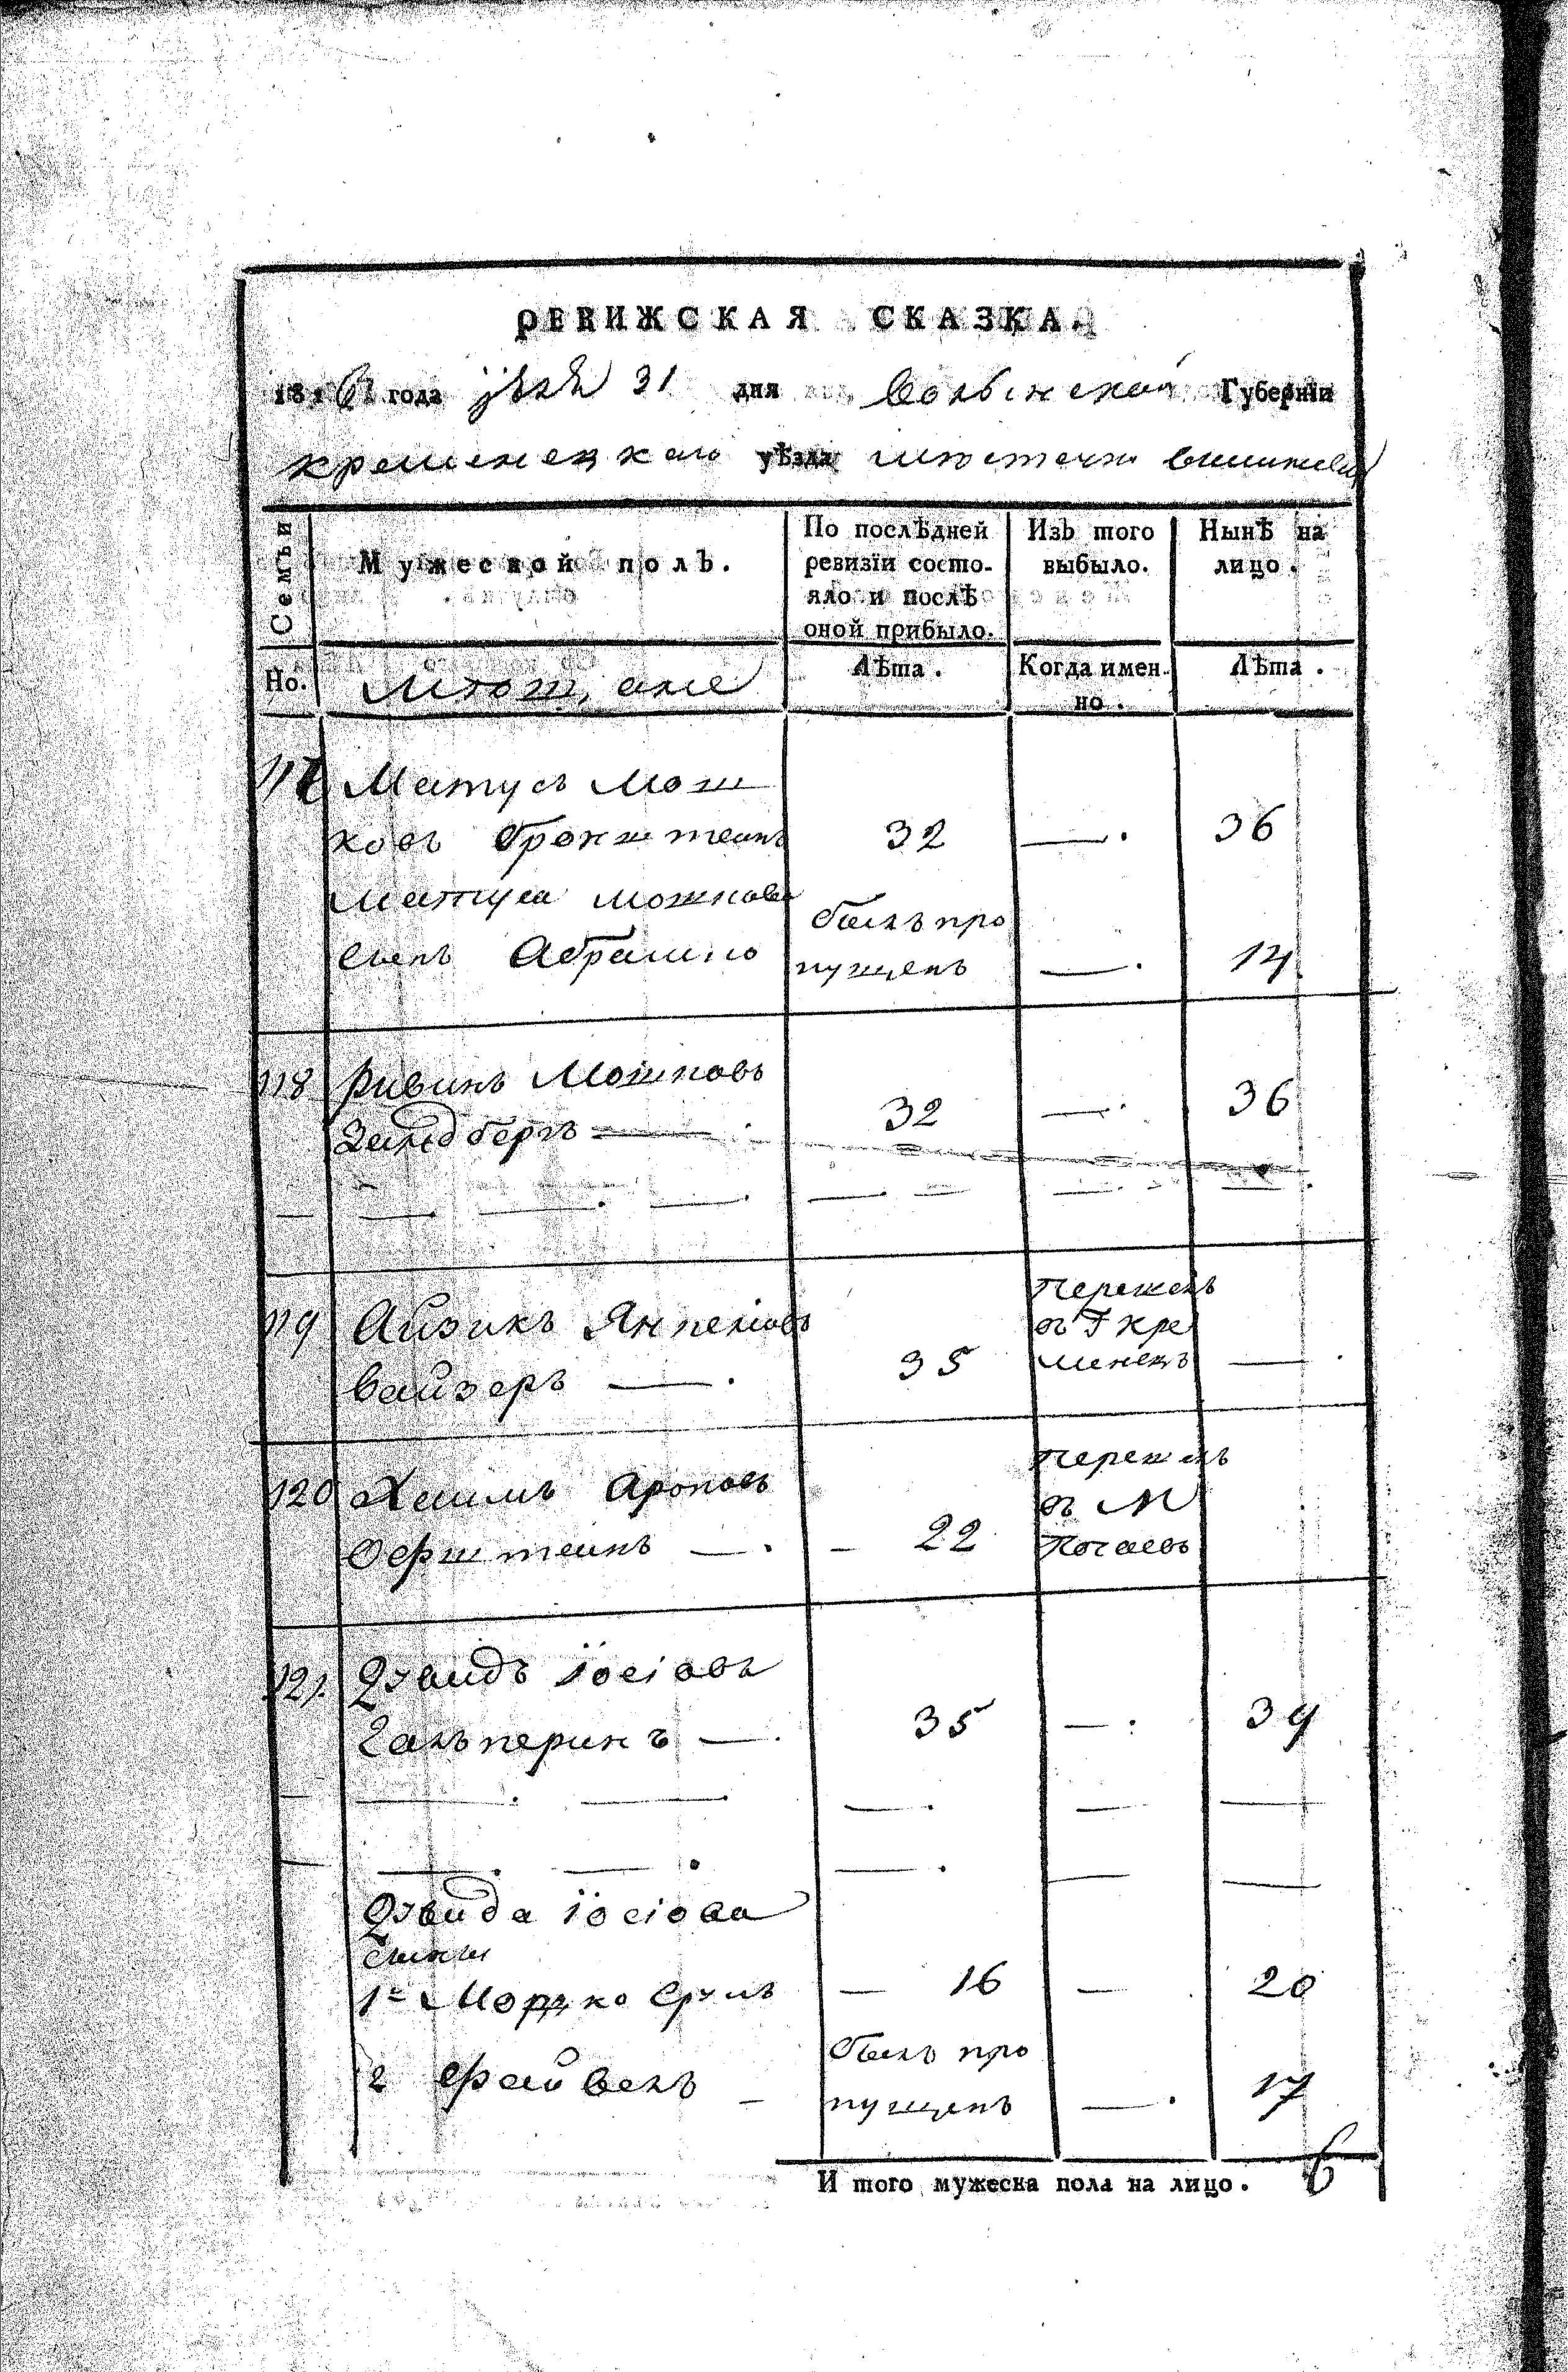 РЕВИЖСКАЯ СКАЗКА.
181 года 31 дня Волынской Губерніи
кременецкаго уѣзда местечка
Семьи
Мужеской полъ.
По послѣдней ревизіи состо-
яло и послѣ
оной прибыло.
Изъ того
выбыло.
Нынѣ на
лицо.
Но.
Лѣта.
Когда имен-
но.
Лѣта.
Матусъ Мош
ковъ бронштеинъ 32 —. 36
Матуса мошкова
сынъ Абрамко былъ про
пущенъ —. 14
118 Ривинъ Мошковъ
Зандбергъ — 32 —. 36
119 Айзикъ Янкеліовъ
вайзеръ —. 35 —.
перешелъ
въ Г кре
менецъ
120 Хаимъ Ароновъ
—. — 22
перешелъ
въ М
Почаевъ
121. Дэвидъ іосіовъ
Галъперинъ —. 35 —. 39
Дэвида іосіова
сыны
1й Мордко Сруль — 16 — 20
2 Файвель — былъ про
пущенъ —. 17
И того мужеска пола на лицо. 6